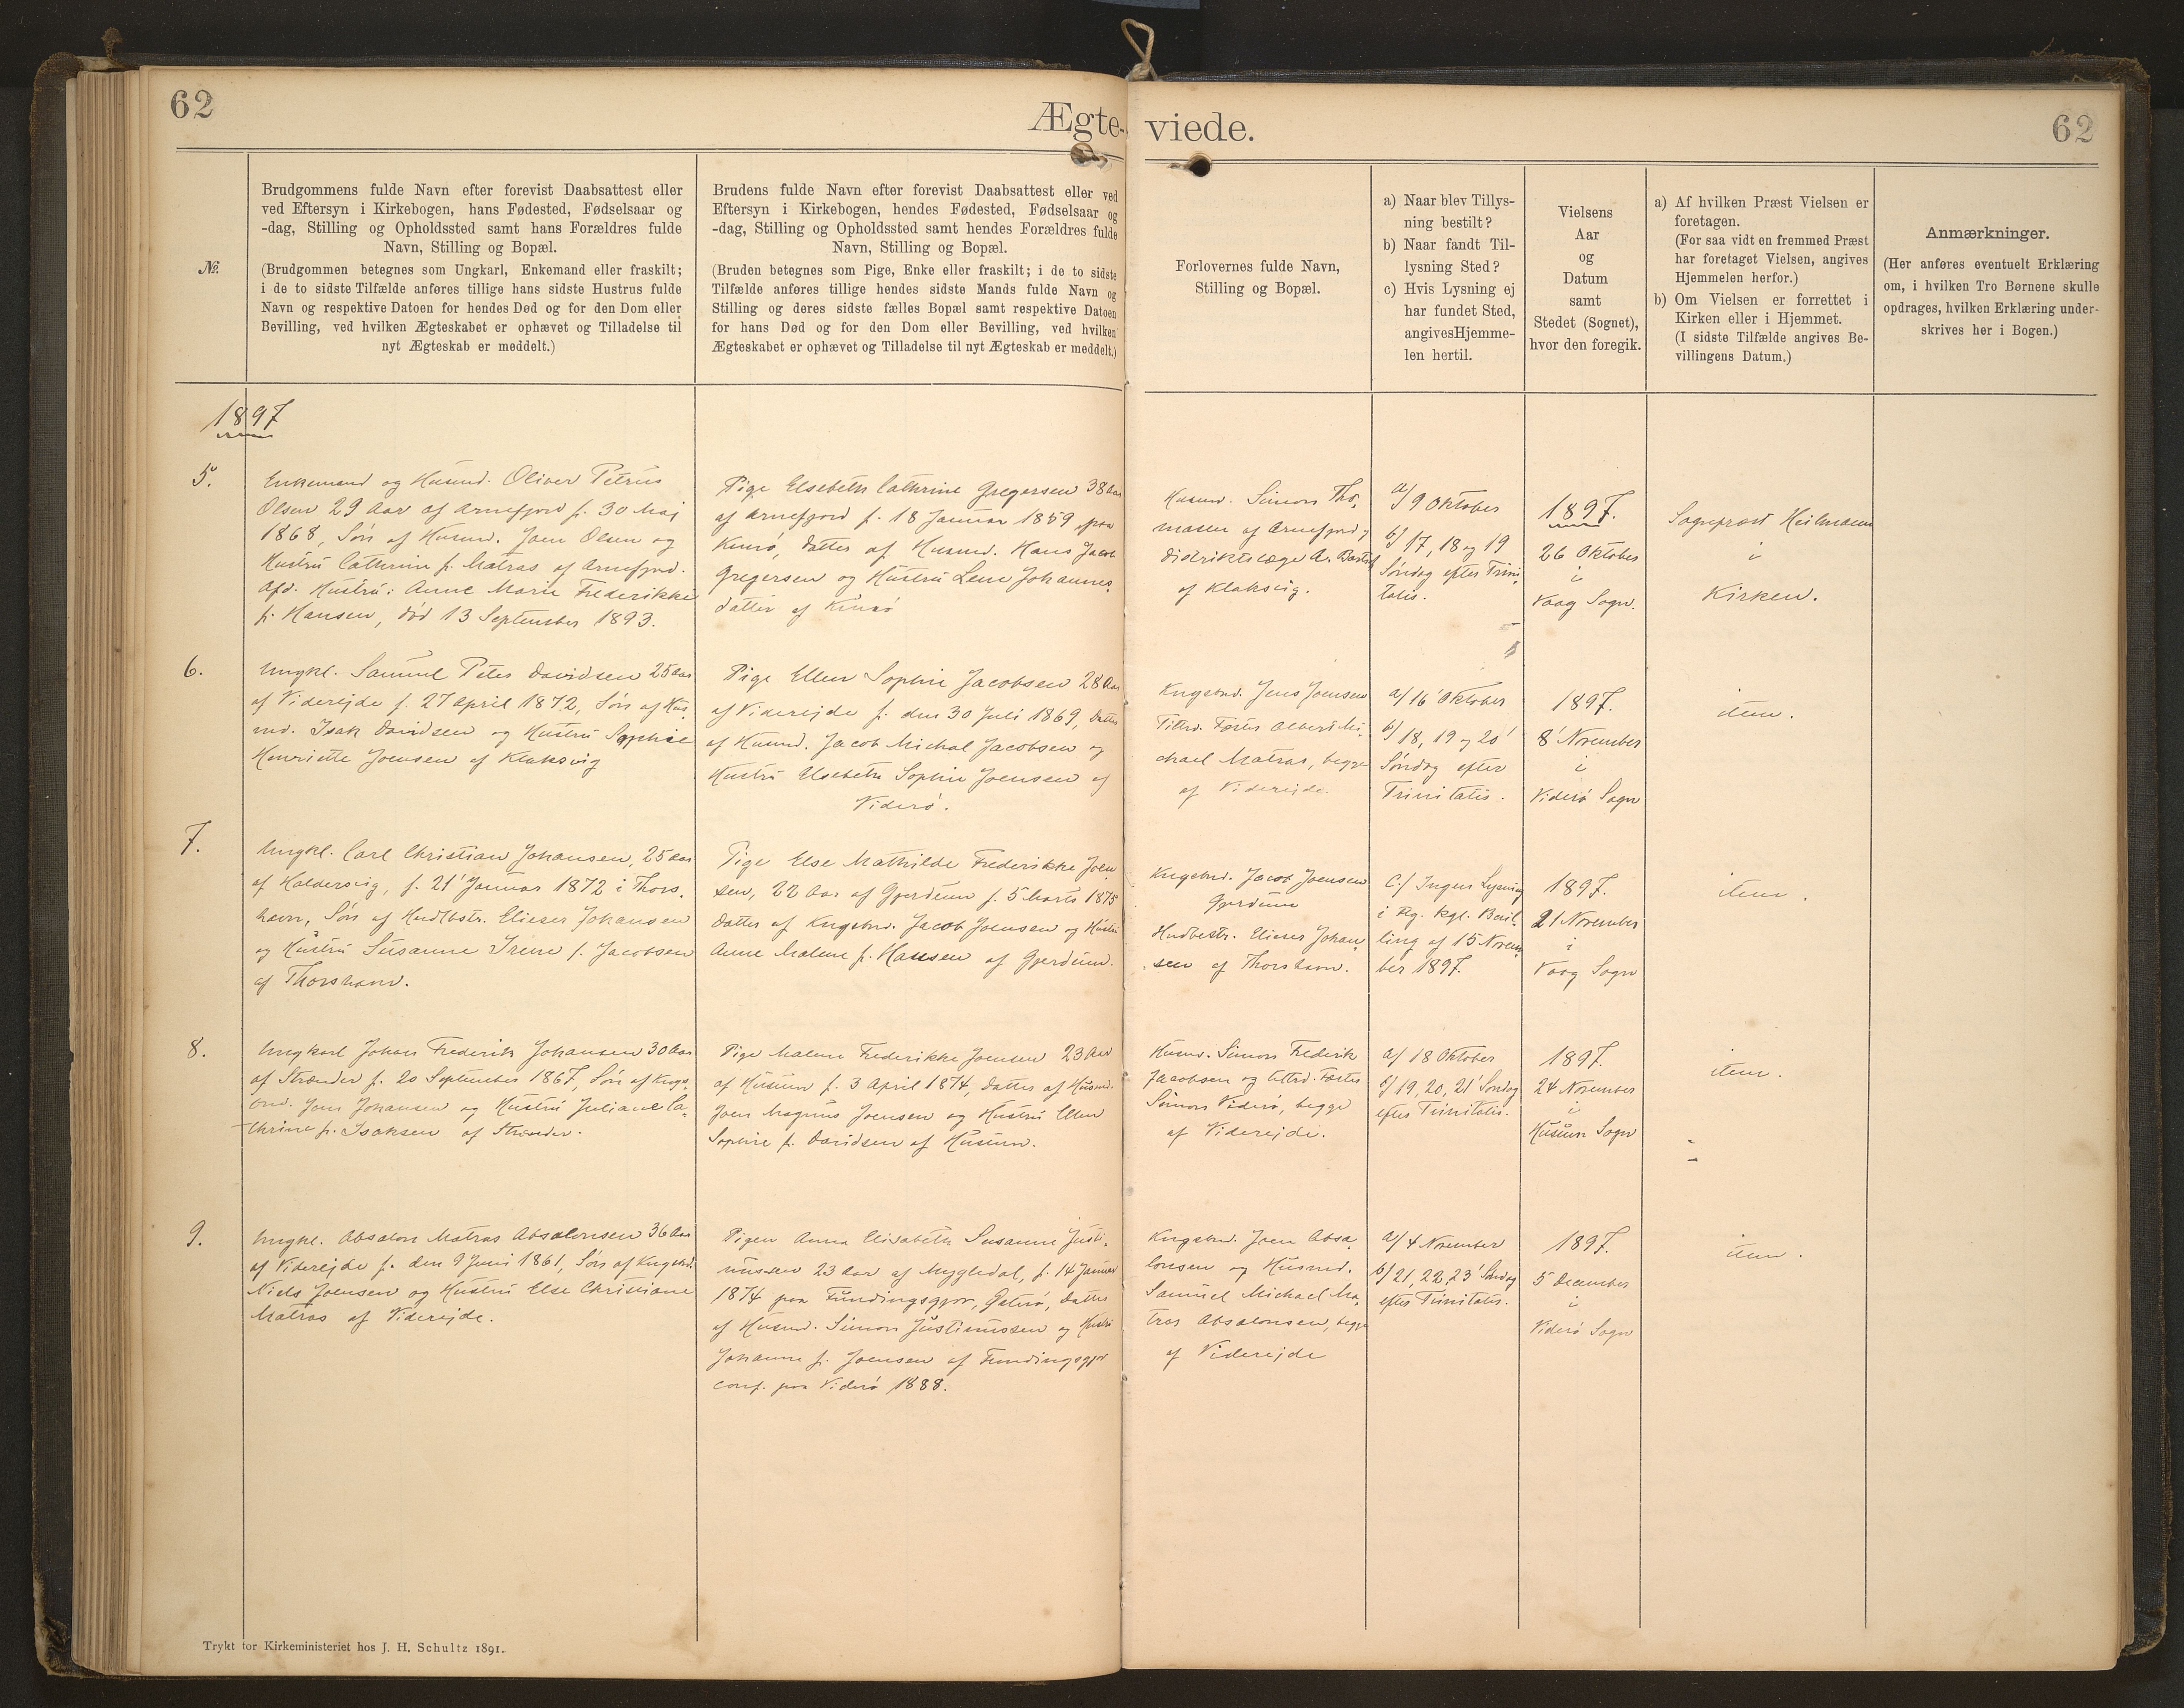 62
Ægte-
viede.
62
№.
Brudgommens fulde Navn efter forevist Daabsattest eller
ved Eftersyn i Kirkebogen, hans Fødested, Fødselsaar og
-dag, Stilling og Opholdssted samt hans Forældres fulde
Navn, Stilling og Bopæl.
(Brudgommen betegnes som Ungkarl, Enkemand eller fraskilt;
i de to sidste Tilfælde anføres tillige hans sidste Hustrus fulde
Navn og respektive Datoen for hendes Død og for den Dom eller
Bevilling, ved hvilken Ægteskabet er ophævet og Tilladelse til
nyt Ægteskab er meddelt.)
Brudens fulde Navn efter forevist Daabsattest eller ved
Eftersyn i Kirkebogen, hendes Fødested, Fødselsaar og
-dag, Stilling og Opholdssted samt hendes Forældres fulde
Navn, Stilling og Bopæl.
(Bruden betegnes som Pige, Enke eller fraskilt; i de to sidste
Tilfælde anføres tillige hendes sidste Mands fulde Navn og
Stilling og deres sidste fælles Bopæl samt respektive Datoen
for hans Død og for den Dom eller Bevilling, ved hvilken
Ægteskabet er ophævet og Tilladelse til nyt Ægteskab er meddelt.)
Forlovernes fulde Navn,
Stilling og Bopæl.
a) Naar blev Tillys-
ning bestilt?
b) Naar fandt Til-
lysning Sted?
c) Hvis Lysning ej
har fundet Sted,
angives Hjemme-
len hertil.
Vielsens
Aar
og
Datum
samt
Stedet (Sognet),
hvor den foregik.
a) Af hvilken Præst Vielsen er
foretagen.
(For saa vidt en fremmed Præst
har foretaget Vielsen, angives
Hjemmelen herfor.)
b) Om Vielsen er forrettet i
Kirken eller i Hjemmet.
(I sidste Tilfælde angives Be-
villingens Datum.)
Anmærkninger.
(Her anføres eventuelt Erklæring
om, i hvilken Tro Børnene skulle
opdrages, hvilken Erklæring under-
skrives her i Bogen.)
1897
5.
Enkemand og Husmd. Oliver Petrus
Olsen 29 Aar af Arnefjord f. 30 Maj
1868, Søn af Husmd. Joen Olsen og
Hustru Cathrine f. Matras af Arnefjord.
Afd. Hustru: Anne Marie Frederikke
f. Hansen, død 13 September 1893.
Pige Elsebeth Cathrine Gregersen 38 Aar
af Arnefjord f. 18 Januar 1859 paa
Kunø, Datter af Husmd. Hans Jacob
Gregersen og Hustru Lene Johannes-
datter af Kunø
Husmd. Simon Tho-
masen af Arnefjord,
Distriktslæge A.
af Klaksvig.
a/ 9 Oktober
b/ 17, 18 og 19
Søndag efter Trini-
tatis.
1897.
26 Oktober
i
Vaag Sogn.
Sognepræst Heilmann
i
Kirken.
6.
Ungkl. Samuel Peter Davidsen 25 Aar
af Viderejde f. 27 April 1872, Søn af Hus-
md. Isak Davidsen og Hustru Sophie
Henriette Joensen af Klaksvig
Pige Ellen Sophie Jacobsen 28 Aar
af Viderejde f. den 30 Juli 1869, Datter
af Husmd. Jacob Michal Jacobsen og
Hustru Elsebeth Sophie Joensen af
Viderø.
Kngsbnd. Jens Joensen
Tiltrd. Fæster Albert Mi-
chael Matras, begge
af Viderejde.
a/ 16 Oktober
b/ 18, 19 og 20
Søndag efter
Trinitatis.
1897.
8 November
i
Viderø Sogn
item.
7.
Ungkl. Carl Christian Johansen, 25 Aar
af Haldersvig, f. 21 Januar 1872 i Thors-
havn, Søn af Hndlbstr. Elieser Johansen
og Hustru Susanne Irene f. Jacobsen
af Thorshavn.
Pige Else Mathilde Frederikke Joen-
sen, 22 Aar af Gjerdum f. 5 Marts 1875
Datter af Kngsbnd. Jacob Joensen og Hustru
Anne Malene f. Hansen af Gjerdum.
Kngsbnd. Jacob Joensen
Gjerdum
Hndbestr. Elieser Johan-
sen af Thorshavn.
c/ Ingen Lysning
i Flg. Kgl. Bevil-
ling af 15 Novem-
ber 1897.
1897.
21 November
i
Vaag Sogn
item.
8.
Ungkarl Johan Frederik Johansen 30 Aar
af Strænder f. 20 September 1867, Søn af Kngs-
bnd. Jens Johansen og Hustru Juliane Ca-
thrine f. Isaksen af Strænder.
Pige Malene Frederikke Joensen 23 Aar
af Husum f. 3 April 1874, Datter af Husmd.
Joen Magnus Joensen og Hustru Ellen
Sophie f. Davidsen af Husum.
Husmd. Simon Frederik
Jacobsen og Tiltrd. Fæster
Simon Viderø, begge
af Viderejde.
a/ 18 Oktober
b/ 19, 20, 21 Søndag
efter Trinitatis.
1897.
24 November
i
Husum Sogn
item.
9.
Ungkl. Absalon Matras Absalonsen 36 Aar
af Viderejde f. den 9 Juni 1861, Søn af Kngsbd.
Niels Joensen og Hustru Else Christiane
Matras af Viderejde.
Pigen Anna Elisabeth Susanne Justi-
nussen 23 Aar af Mygledal, f. 14 Januar
1874 paa Fundingsgjov, Østerø, Datter
af Husmd. Simon Justinussen og Hustru
Johanne f. Joensen af Fundingsgjov
conf. paa Viderø 1888.
Kngsbnd. Joen Absa-
lonsen og Husmd.
Samuel Michael Ma-
tras Absalonsen, begge
af Viderejde
a/ 4 November
b/ 21, 22, 23 Søndag
efter Trinitatis.
1897.
5 December
i
Viderø Sogn
item.
Trykt for Kirkeministeriet hos J. H. Schultz 1891.